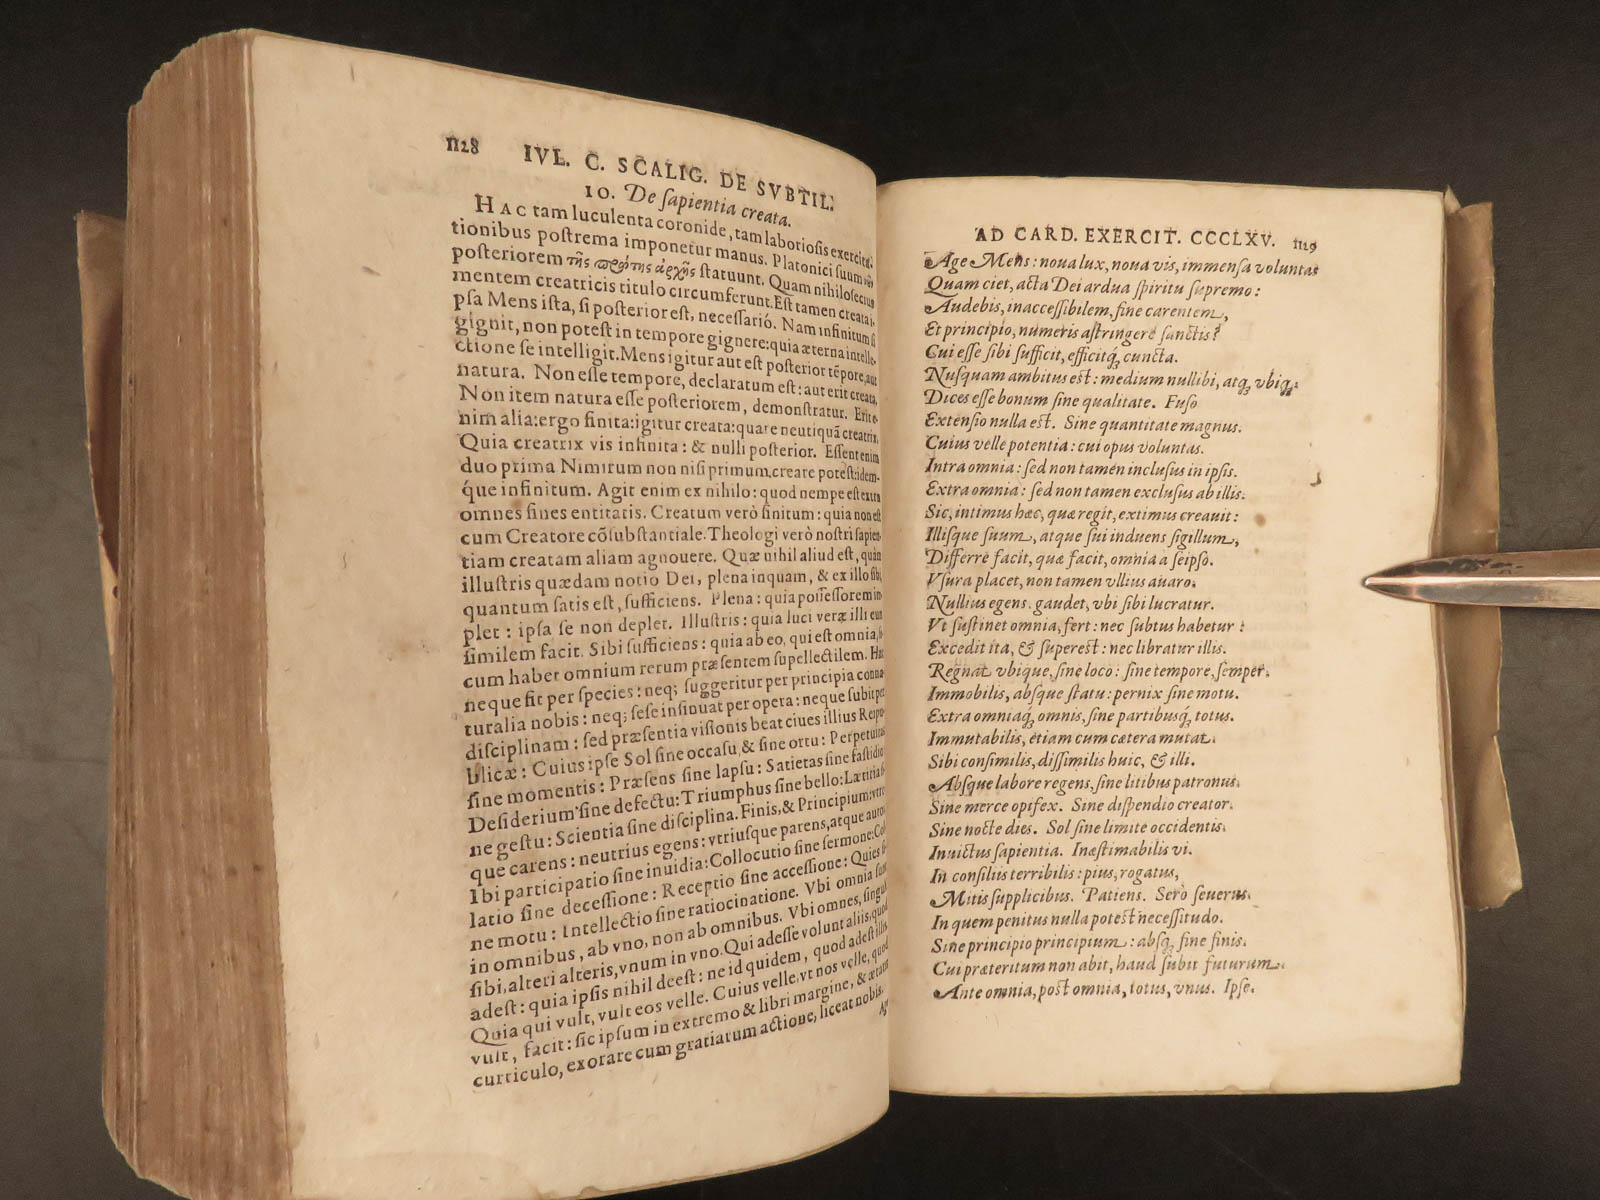 1128 IVL. C. SCALIG. DE SVBTIL.
10. De ſapientia creata.
HAC tam luculenta coronide, tam laborioſis exercita-
tionibus poſtrema imponetur manus. Platonici ſuum
poſteriorem τῆς πρώτης ἀρχῆς ſtatuunt. Quam nihiloſecius
mentem creatricis titulo circumferunt. Eſt tamen creata i-
pſa Mens iſta, ſi poſterior eſt, neceſſariò. Nam infinitum ſi
gignit, non poteſt in tempore gignere: quia æterna intelle-
ctione ſe intelligit. Mens igitur aut eſt poſterior tẽpore, aut
natura. Non eſſe tempore, declaratum eſt: aut erit creata.
Non item natura eſſe poſteriorem, demonſtratur. Erit e-
nim alia: ergo finita: igitur creata: quare neutiquã creatrix.
Quia creatrix vis infinita: & nulli poſterior. Eſſent enim
duo prima Nimirum non niſi primum creare poteſt: idem-
que infinitum. Agit enim ex nihilo: quod nempe eſt extra
omnes fines entitatis. Creatum verò finitum: quia non eſt
cum Creatore cõſubſtantiale. Theologi verò noſtri ſapien-
tiam creatam aliam agnouere. Quæ nihil aliud eſt, quàm
illuſtris quædam notio Dei, plena inquam, & ex illo ſibi,
quantum ſatis eſt, ſufficiens. Plena: quia poſſeſſorem im-
plet: ipſa ſe non deplet. Illuſtris: quia luci veræ illi eum
ſimilem facit. Sibi ſufficiens: quia ab eo, qui eſt omnia, ſe-
cum habet omnium rerum præſentem ſupellectilem. Hæc
neque fit per ſpecies: neq; ſuggeritur per principia conna-
turalia nobis: neq; ſeſe inſinuat per opera: neque ſubit per
diſciplinam: ſed præſentia viſionis beat ciues illius Reipu-
blicæ: Cuius ipſe Sol ſine occaſu, & ſine ortu: Perpetuitas
ſine momentis: Præſens ſine lapſu: Satietas ſine faſtidio
Deſiderium ſine defectu: Triumphus ſine bello: Lætitia ſi-
ne geſtu: Scientia ſine diſciplina. Finis, & Principium: vtro-
que carens: neutrius egens: vtriuſque parens, atque autor.
Ibi participatio ſine inuidia: Collocutio ſine ſermone: Col-
latio ſine deceſſione: Receptio ſine acceſſione: Quies ſi-
ne motu: Intellectio ſine ratiocinatione. Vbi omnia ſunt
in omnibus, ab vno, non ab omnibus. Vbi omnes, ſinguli
ſibi, alteri alteris, vnum in vno. Qui adeſſe volunt aliis, quod
adeſt: quia ipſis nihil deeſt: ne id quidem, quod adeſt illis.
Quia qui vult, vult eos velle. Cuius velle, vt nos velle, quod
vult, facit: ſic ipſum in extremo & libri margine, & ætatis
curriculo, exorare cum gratiarum actione, liceat nobis.
Age
AD CARD. EXERCIT. CCCLXV. 1129
Age Mens: noua lux, noua vis, immenſa voluntas
Quam ciet, acta Dei ardua ſpiritu ſupremo:
Audebis, inacceſſibilem, fine carentem,
Et principio, numeris aſtringere ſanctis?
Cui eſſe ſibi ſufficit, efficitq́ cuncta.
Nuſquam ambitus eſt: medium nullibi, atq́ vbiq́;
Dices eſſe bonum ſine qualitate. Fuſo
Extenſio nulla eſt. Sine quantitate magnus.
Cuius velle potentia: cui opus voluntas.
Intra omnia: ſed non tamen incluſus in ipſis.
Extra omnia: ſed non tamen excluſus ab illis.
Sic, intimus hæc, quæ regit, extimus creauit:
Illiſque ſuum, atque ſui induens ſigillum,
Differre facit, quæ facit, omnia à ſeipſo.
Vſura placet, non tamen vllius auaro.
Nullius egens gaudet, vbi ſibi lucratur.
Vt ſuſtinet omnia, fert: nec ſubtus habetur:
Excedit ita, & ſupereſt: nec libratur illis.
Regnat vbique, ſine loco: ſine tempore, ſemper.
Immobilis, abſque ſtatu: pernix ſine motu.
Extra omniaq́ omnis, ſine partibuſq́ totus.
Immutabilis, etiam cum cætera mutat.
Sibi conſimilis, diſſimilis huic, & illi.
Abſque labore regens, ſine litibus patronus.
Sine merce opifex. Sine diſpendio creator.
Sine nocte dies. Sol ſine limite occidentis.
Inuictus ſapientia. Inæſtimabilis vi.
In conſiliis terribilis: pius, rogatus,
Mitis ſupplicibus. Patiens. Serò ſeuerus.
In quem penitus nulla poteſt neceſſitudo.
Sine principio principium: abſq́ fine finis.
Cui præteritum non abit, haud ſubit futurum.
Ante omnia, poſt omnia, totus, vnus. Ipſe.